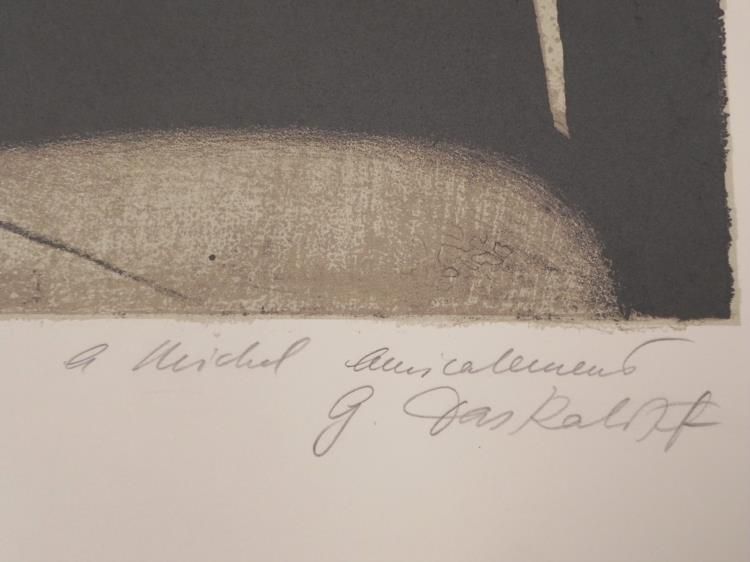 a Michel amicalement
G. Daskaloff